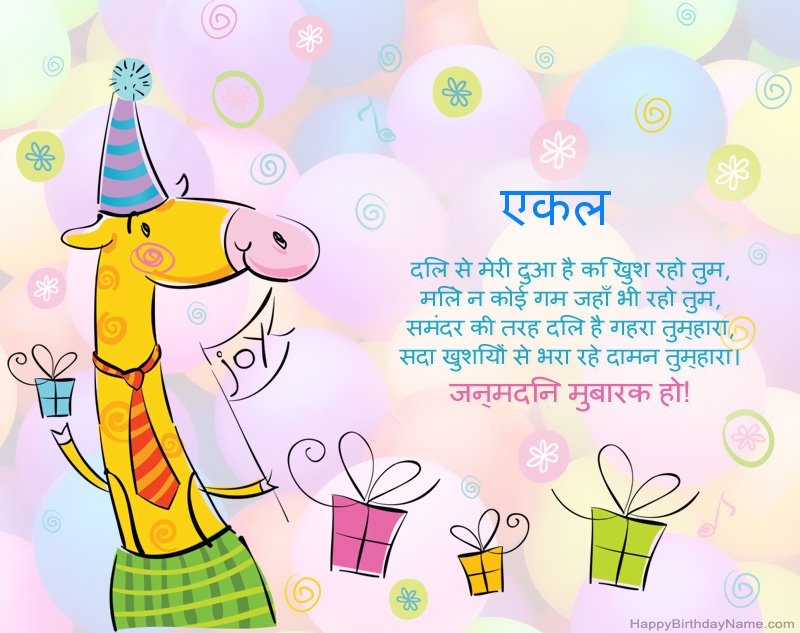 एकल
दलि से मेरी दुआ है कि खुश रहो तुम,
मलिे न कोई गम जहाँ भी रहो तुम,
समंदर की तरह दलि है गहरा तुम्हारा,
सदा खुशयिों से भरा रहे दामन तुम्हारा।
जन्मदनि मुबारक हो!
joy
HappyBirthdayName.com